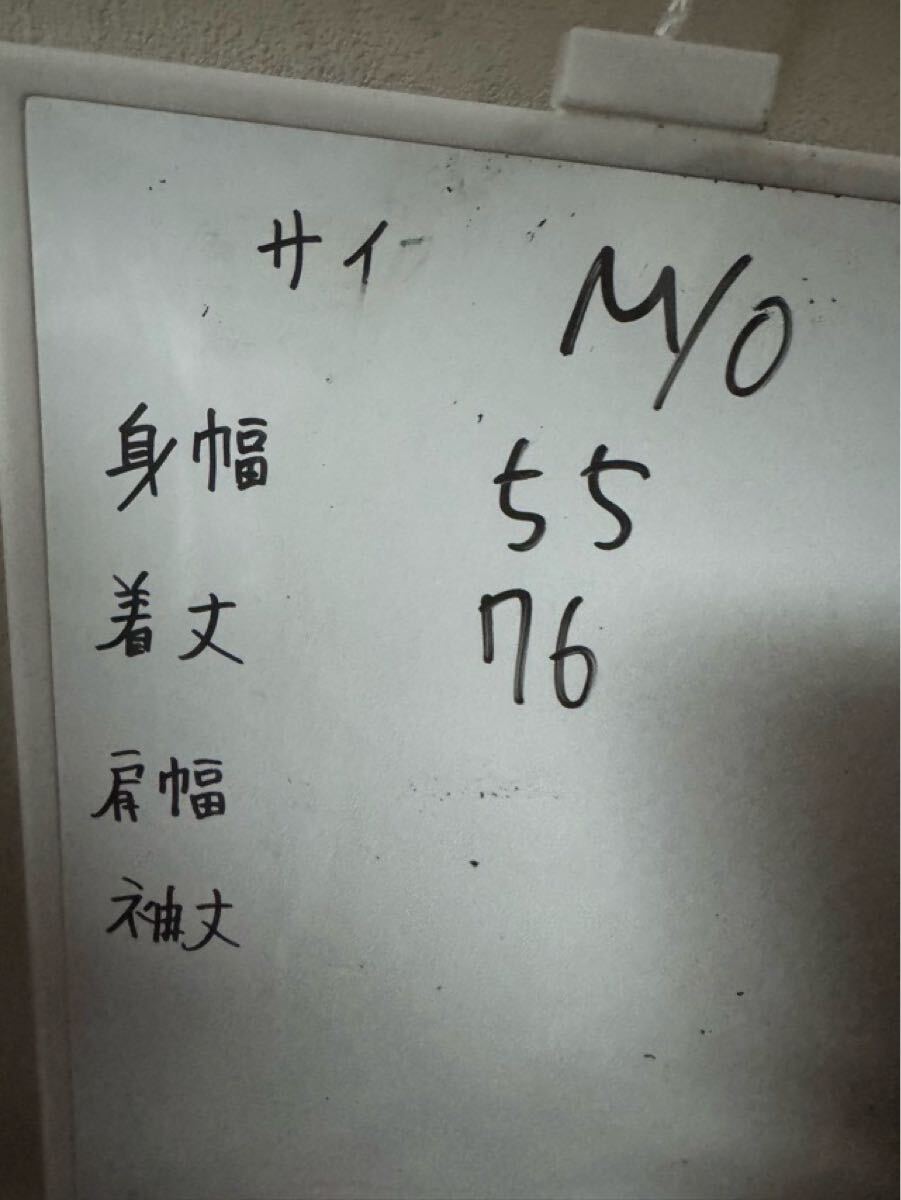 サイ M/O
身幅 55
着丈 76
肩幅
袖丈